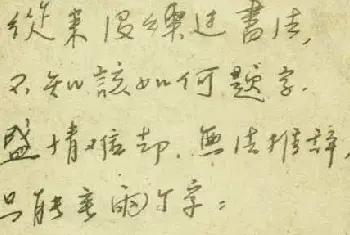 從來沒練过書法,
不知該如何題字.
盛情难却.無法推辞,
只能寫兩个字: